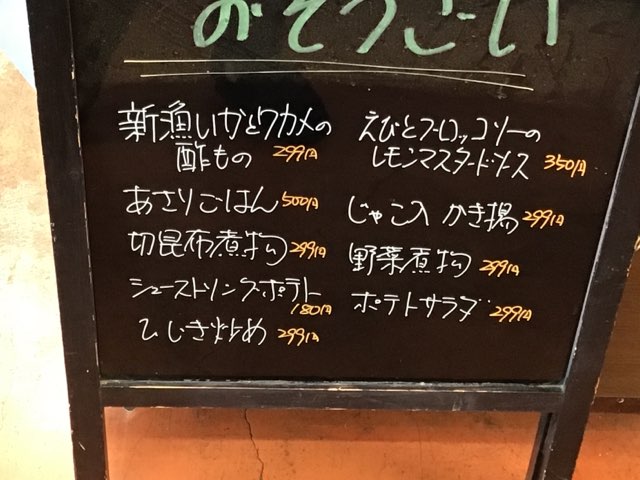 おそうざい
新漁いかとワカメの
酢もの 299円
あさりごはん 500円
切昆布煮物 299円
シューストリングポテト
180円
ひじき炒め 299円
えびとブロッコリーの
レモンマスタードソース 350円
じゃこ入かき揚 299円
野菜煮物 299円
ポテトサラダ 299円